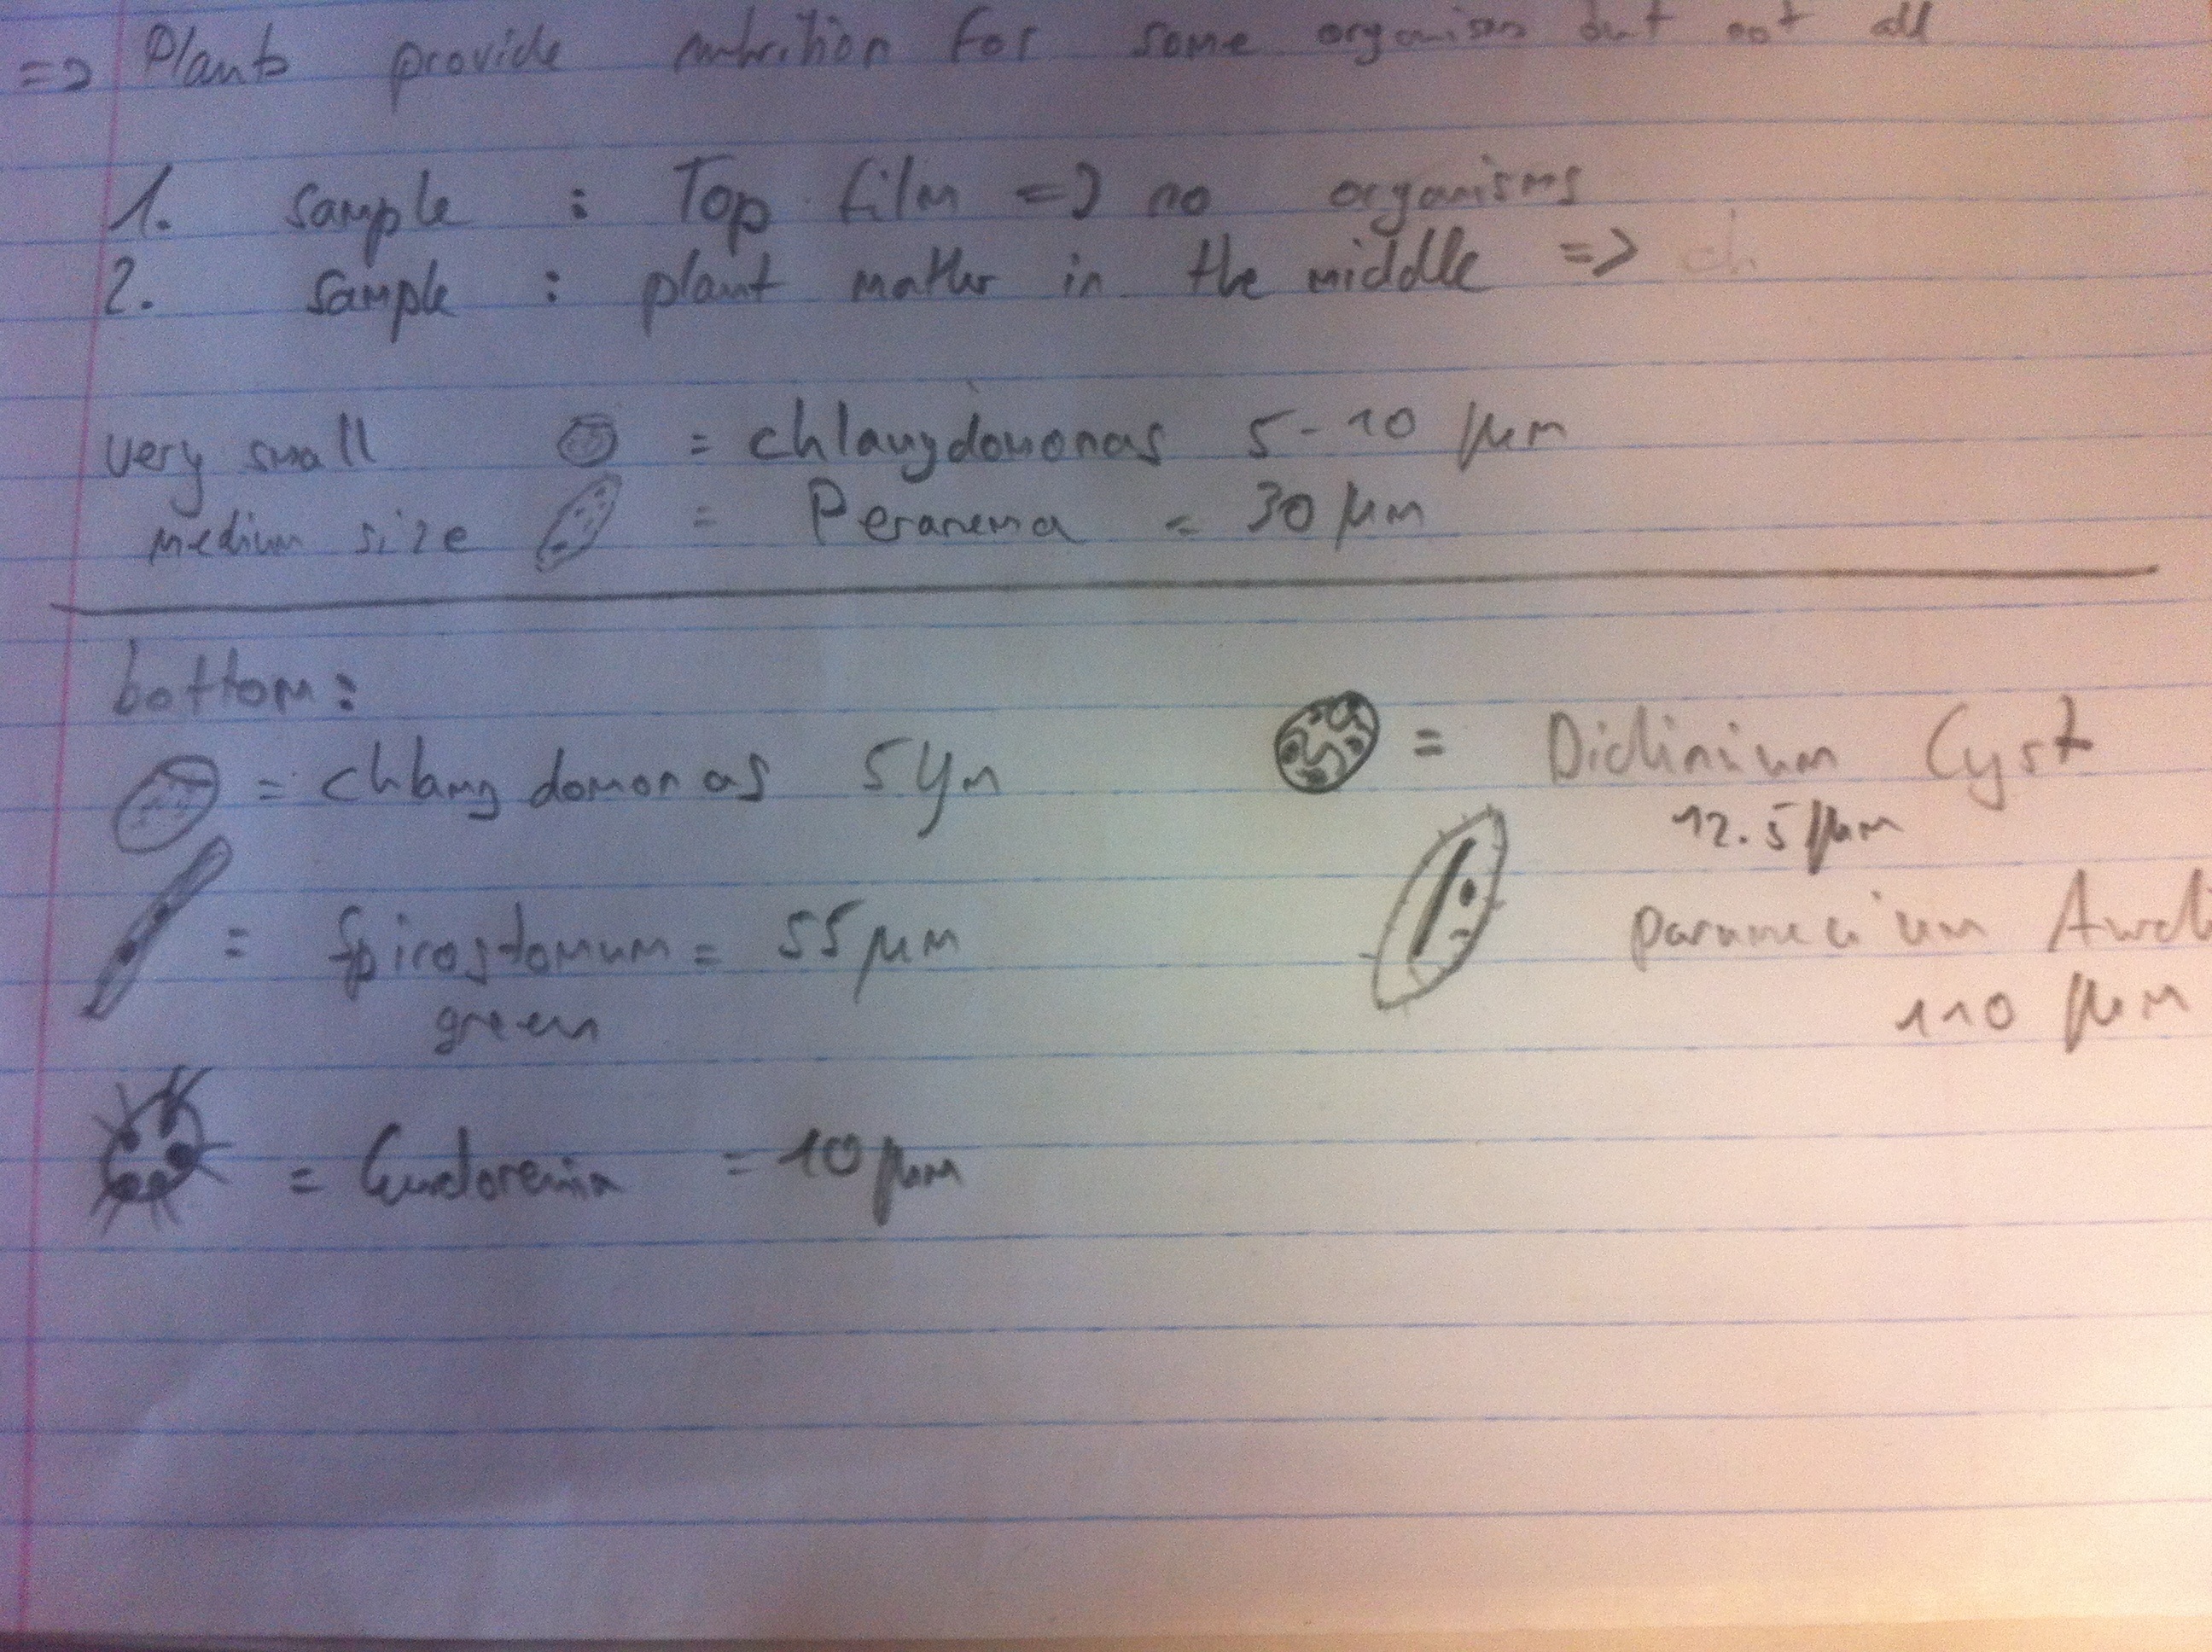 => Plants provide nutrition for some organism but not all
1. sample : Top film => no organisms
2. sample : plant matter in the middle => ch
very small = chlamydomonas 5-10 µm
medium size = Peranema = 30 µm
bottom:
= chlamydomonas 5 µm
= Spirostomum = 55 µm
green
= = 10 µm
= Didinium Cyst
12.5 µm
paramecium
110 µm